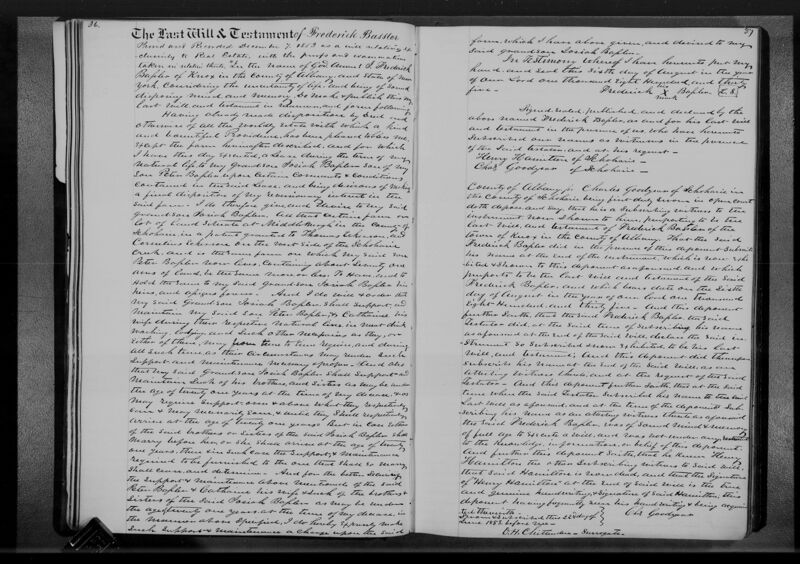 36.
The Last Will & Testament of Frederick Bassler
Proved and Recorded December 7, 1853 as a will relating ex-
clusively to Real Estate, with the proofs and examination
taken in relation thereto. In the Name of God Amen! I Frederick
Bassler of Knox in the County of Albany, and State of New
York Considering the uncertainty of life, and being of Sound
disposing mind and memory do make & publish this my
last will and testament in manner, and form following
Having already made disposition by deed and
otherwise of all the worldly estate with which a kind
and bountiful Providence has been pleased to bless me,
except the farm hereinafter described, and for which
I have this day executed a Lease during the term of my
Natural life to my Grand son Josiah Bassler son of my
Son Peter Bassler upon certain Covenants & Conditions
contained in the said Lease, and being desirous of making
a final disposition of my reversionary interest in the
said farm. I do therefore give and devise to my said
grand son Josiah Bassler, All that certain farm or
lot of land situate at Middleburgh in the County of
Schoharie in a patent granted to Thomas Eckerson, and
Cornelius Eckerson on the west side of the Schoharie
Creek, and is the same farm on which my said son
Peter Bassler now lives, Containing about ninety-six
acres of land, be the same more or less. To Have and to
Hold the same to my said Grand son Josiah Bassler his
heirs, and assigns forever. And I do will & order that
my said Grand son Josiah Bassler shall support and
maintain my said son Peter Bassler & Catharine his
wife during their respective natural lives in meat drink
washing lodging & such other necessaries as they, or
either of them, may from time to time require, and during
all such time as their circumstances may render such
support and maintenance necessary & proper. And also
that my said Grand son Josiah Bassler shall support and
maintain such of his brothers, and sisters as may be under
the age of twenty one years at the time of my decease & as
may require support over & above what they respectively
earn & may necessarily earn & until they shall respectively
arrive at the age of twenty one years. But in case either
of the said brothers or sisters of the said Josiah Bassler shall
marry before he, or she shall arrive at the age of twenty
one years, then & in such case the support & maintenance
required to be furnished to the one that shall so marry
shall cease and determine. And for the better securing
the support & maintenance above mentioned of the said
Peter Bassler & Catharine his wife & such of the brothers &
sisters of the said Josiah Bassler as may be under
the age of twenty one years at the time of my decease, in
the manner above specified, I do hereby expressly make
such support & maintenance a charge upon the said
37
farm which I have above given, and devised to my
said grand son Josiah Bassler.
In Testimony whereof I have hereunto put my
hand and seal this Sixth day of August in the year
of our Lord one thousand eight hundred and thirty
five—
his
Frederick X Bassler L.S.
mark
Signed sealed, published, and declared by the
above named Frederick Bassler, as and for his last will
and testament in the presence of us, who have hereunto
subscribed our names as witnesses in the presence
of the said testator, and at his request—
Henry Hamilton of Schoharie—
Chas Goodyear of Schoharie—
County of Albany ss: Charles Goodyear of Schoharie in
the County of Schoharie being first duly sworn in open court
doth depose and say, that he is a subscribing witness to the
instrument now shown to him, purporting to be the
last will, and testament of Frederick Bassler of the
town of Knox in the County of Albany. That the said
Fredrick Bassler did in the presence of this deponent subscribe
his name at the end of the instrument, which is now exhi-
bited & shown to this deponent as aforesaid and which
purports to be the last will and testament of the said
Frederick Bassler, and which bears date on the sixth
day of August in the year of our Lord one thousand
eight hundred and thirty five. And this deponent
further saith, that the said Frederick Bassler the said
testator did at the said time of subscribing his name
as aforesaid at the end of the said will, declare the said in-
strument so subscribed & now exhibited to be his last
will, and testament; And this deponent did thereupon
subscribe his name at the end of the said will, as an
attesting witness thereto, and at the request of the said
Testator— And this deponent further saith, that at the said
time when the said testator subscribed his name to the said
last will as aforesaid and at the time of the deponent's sub-
scribing his name as an attesting witness thereto as aforesaid
the said Frederick Bassler was of sound mind & memory
of full age to execute a will, and was not under any restraint
to the knowledge, information, or belief of this deponent.
And further this deponent saith, that he knew Henry
Hamilton the other subscribing witness to said will;
that said Hamilton is now dead, and that the signature
of "Henry Hamilton" at the end of said will is the true
and genuine handwriting & signature of said Hamilton, this
deponent having frequently seen his handwriting & being acquain-
ted therewith.—
Sworn & subscribed this 22d day of
June 1853. before me
Chs Goodyear
O. H. Chittenden — Surrogate